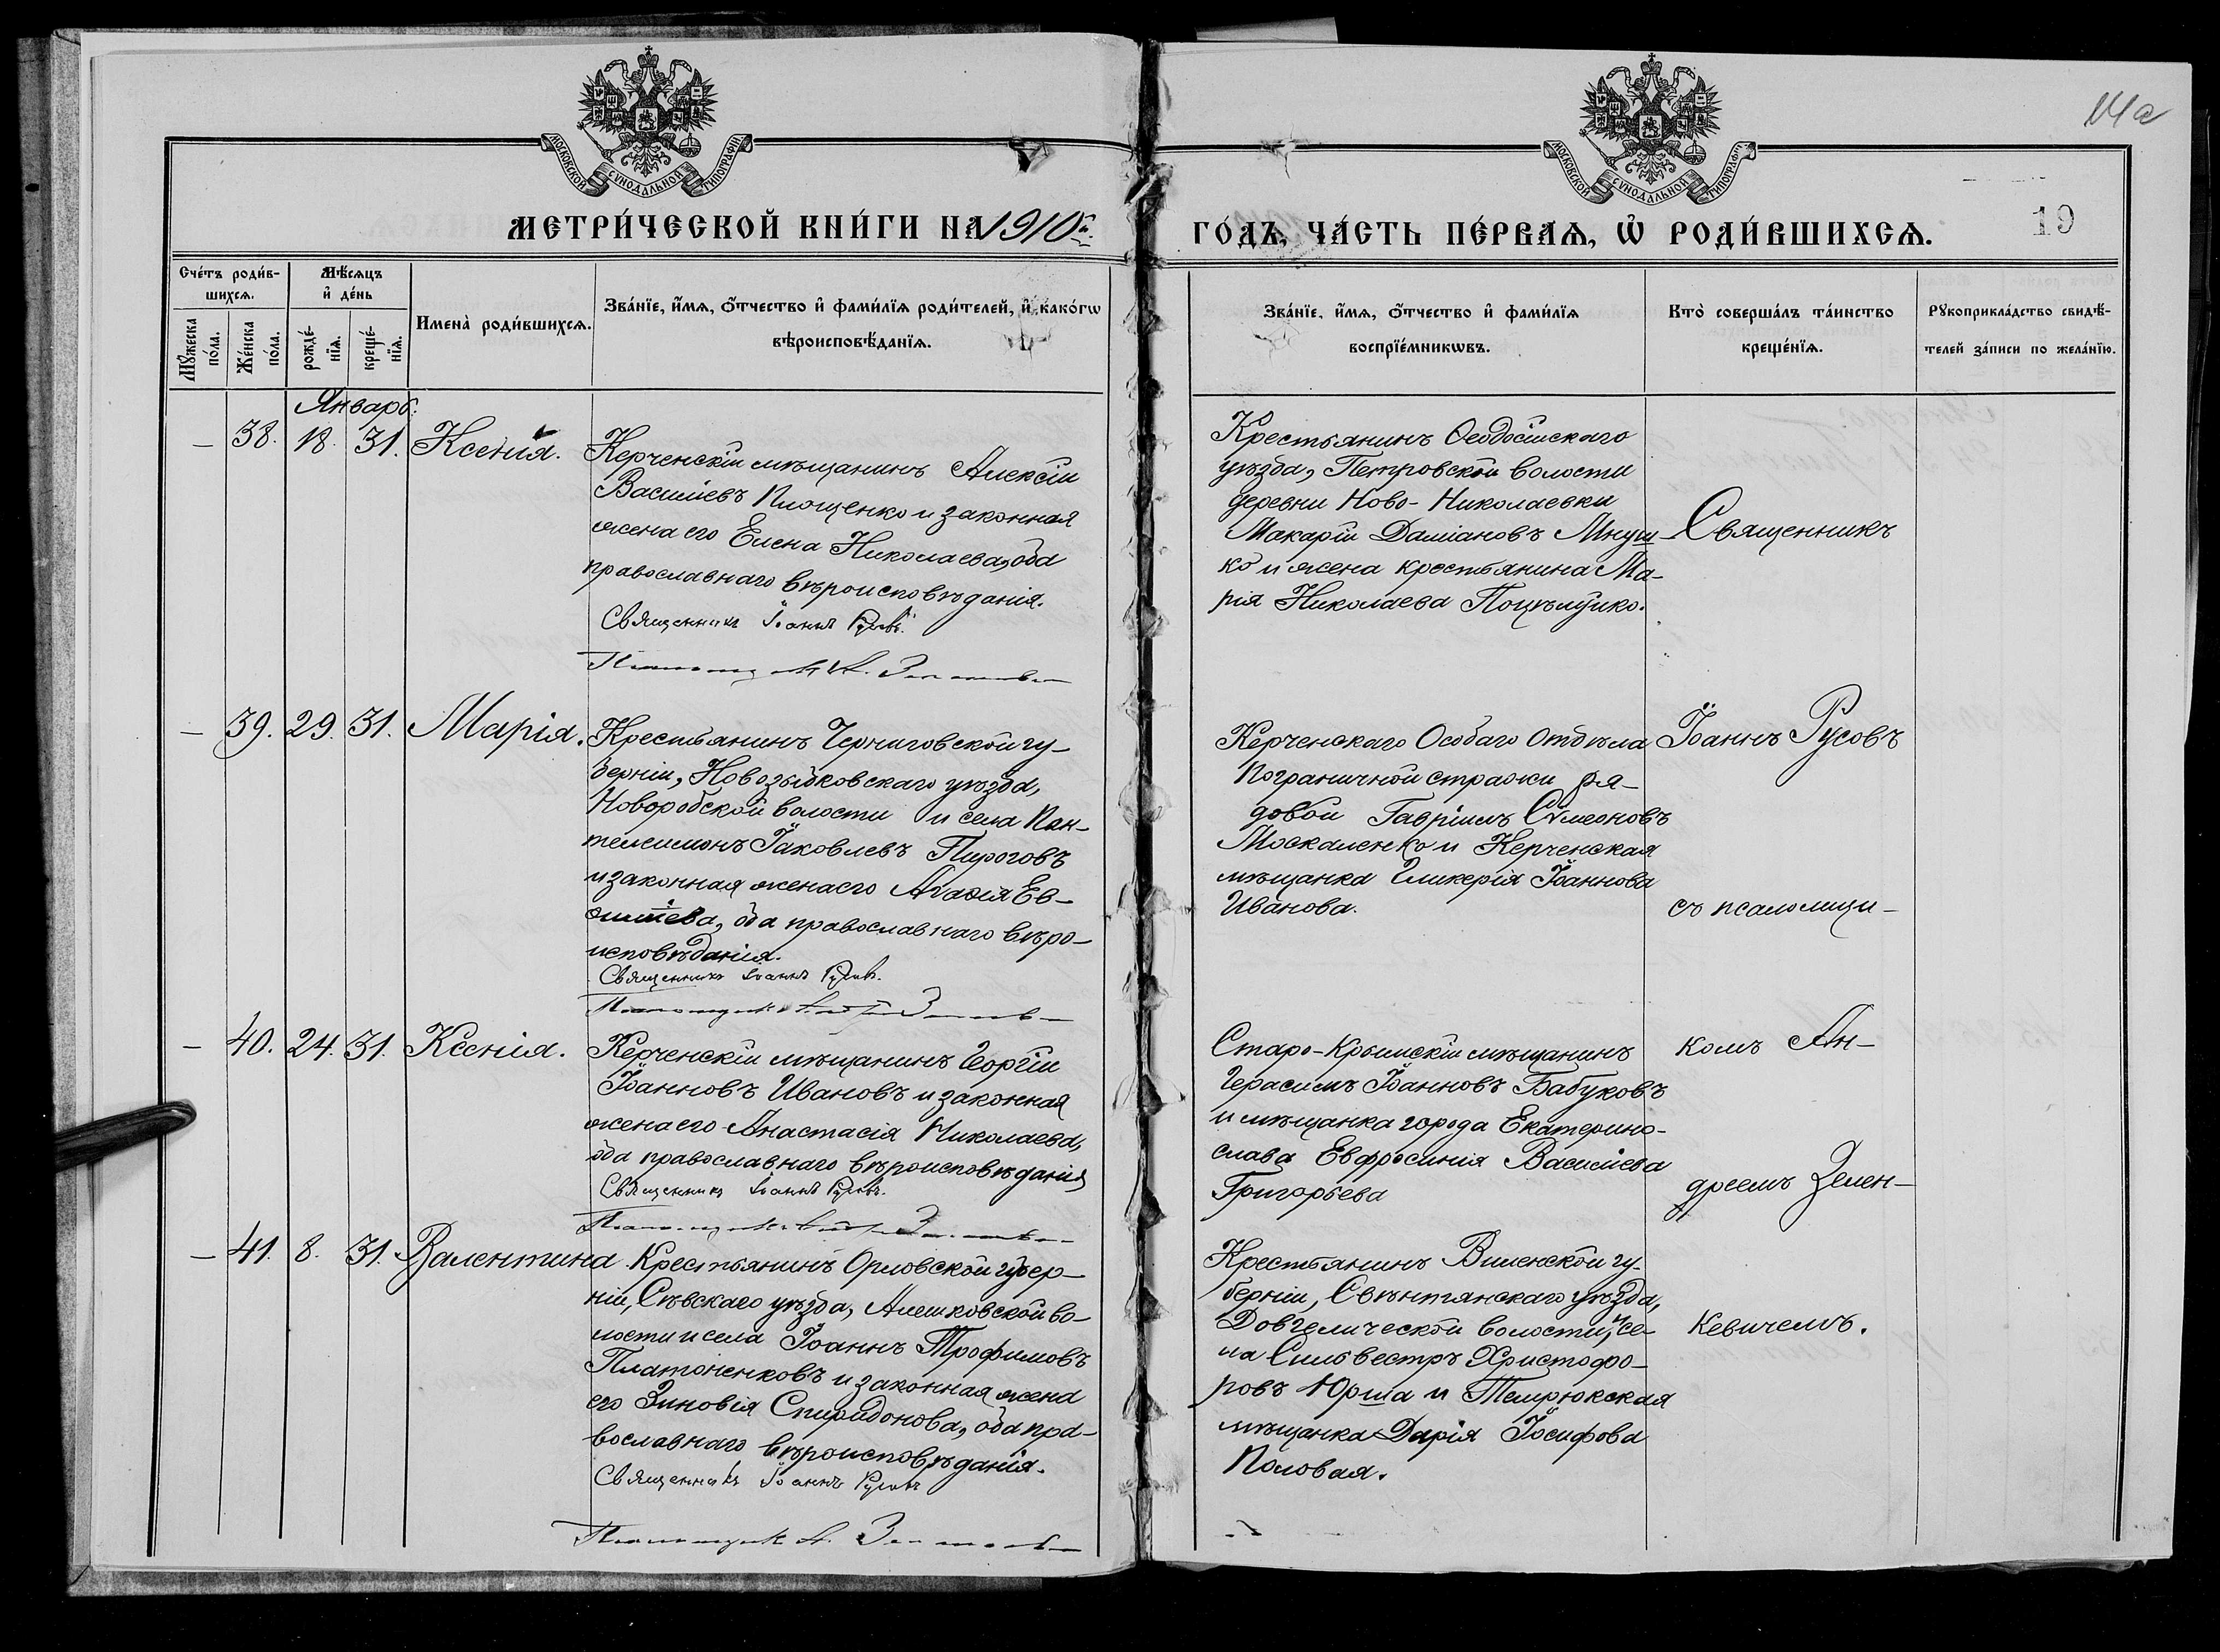 14а
МОСКОВСКОЙ СѴНОДАЛЬНОЙ ТИПОГРАФІИ
МОСКОВСКОЙ СѴНОДАЛЬНОЙ ТИПОГРАФІИ
МЕТРИ́ЧЕСКОЙ КНИ́ГИ НА 1910й.
ГО́ДЪ, ЧА́СТЬ ПЕ́РВАѦ, Ѡ҆ РОДИ́ВШИХСѦ.
19
Сче́тъ роди́в-
шихсѧ.
Мꙋ́жеска
по́ла.
Же́нска
по́ла.
Мѣ́сѧцъ
и҆ де́нь
рожде́-
нїѧ.
креще́-
нїѧ.
Имена̀ роди́вшихсѧ.
Зва́нїе, и҆́мѧ, ѻ҆́тчество и҆ фами́лїѧ роди́телей, и҆ како́гѡ
вѣроисповѣ́данїѧ.
Зва́нїе, и҆́мѧ, ѻ҆́тчество и҆ фами́лїѧ
воспрїе́мникѡвъ.
Кто̀ соверша́лъ та́инство
креще́нїѧ.
Рꙋкоприкла́дство свидѣ́-
телей за́писи по жела́нїю.
Январь.
— 38. 18. 31. Ксенія.
Керченскій мѣщанинъ Алексій
Василіевъ Площенко и законная
жена его Елена Николаева, оба
православнаго вѣроисповѣданія.
Священникъ Іоаннъ Русовъ.
Крестьянинъ Ѳеодосійскаго
уѣзда, Петровской волости
деревни Ново-Николаевки
Макарій Даміановъ Мнуш-
ко и жена крестьянина Ма-
рія Николаева Поцѣлуйко.
Священникъ
— 39. 29. 31. Марія.
Крестьянинъ Черниговской гу-
берніи, Новозыбковскаго уѣзда,
Новоробской волости и села Пан-
телеимонъ Іаковлевъ Пироговъ
и законная жена его Агаѳія Ев-
оба православнаго вѣро-
исповѣданія.
Священникъ Іоаннъ Русовъ.
Керченскаго Особаго Отдѣла
Пограничной стражи ря-
довой Гавріилъ Сѵмеоновъ
Москаленко и Керченская
мѣщанка Гликерія Іоаннова
Иванова.
Іоаннъ Русовъ
съ псаломщи-
— 40. 24. 31. Ксенія.
Керченскій мѣщанинъ Георгій
Іоанновъ Ивановъ и законная
жена его Анастасія Николаева,
оба православнаго вѣроисповѣданія
Священникъ Іоаннъ Русовъ.
Старо-Крымскій мѣщанинъ
Герасимъ Іоанновъ Бабуковъ
и мѣщанка города Екатерино-
слава Евфросинія Василіева
Григорьева
комъ Ан-
дреемъ Зелен-
— 41. 8. 31. Валентина
Крестьянинъ Орловской губер-
ніи, Сѣвскаго уѣзда, Алешковской во-
лости и села Іоаннъ Трофимовъ
Платоненковъ и законная жена
его Зиновія Спиридонова, оба пра-
вославнаго вѣроисповѣданія.
Священникъ Іоаннъ Русовъ
Крестьянинъ Виленской гу-
берніи, Свѣнтянскаго уѣзда,
Довгелической волости, и се-
ла Сильвестръ Христофо-
ровъ Юрша и Темрюкская
мѣщанка Дарія Іосифова
Половая.
кевичемъ.